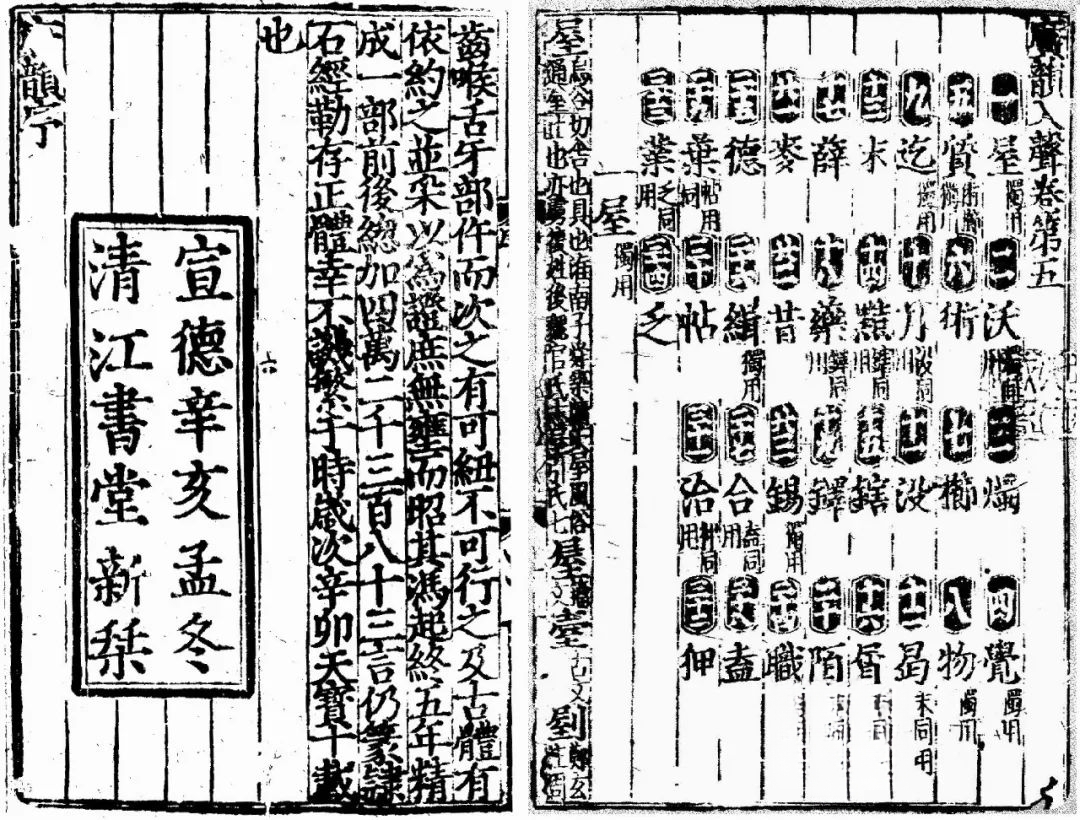 廣韻入聲卷第五
一屋獨用 二沃燭同用 三燭 四覺獨用
五質術櫛同用 六術 七櫛 八物獨用
九迄獨用 十月没同用 十一没 十二曷末同用
十三末 十四黠鎋同用 十五鎋 十六屑
十七薛 十八藥鐸同用 十九鐸 二十陌
二十一麥 二十二昔 二十三錫獨用 二十四職
二十五德 二十六緝獨用 二十七合盍同用 二十八盍
二十九葉帖同用 三十帖 三十一洽狎同用 三十二狎
三十三業乏同用 三十四乏
一屋獨用
屋烏谷切舍也具也淮南子
屋
齒喉舌牙部仵而次之有可紐不可行之及古體有
依約之並采以為證庶無壅而昭其馮起終五年精
成一部前後總加四萬二千三百八十三言仍篆隸
石經勒存正體幸不譏繁于時歲次辛卯天寶十載
也
六
宣德辛亥孟冬
清江書堂新栞
韻序